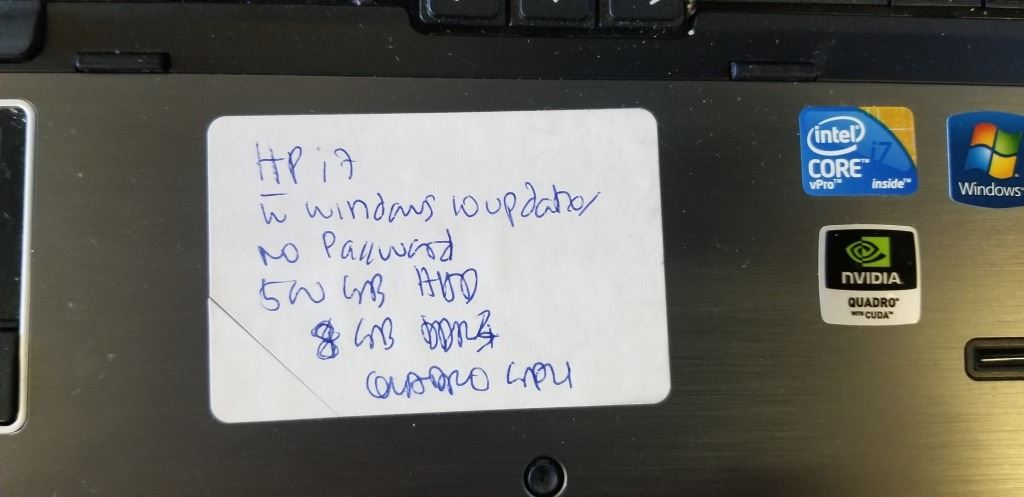 HP i7
w windows 10 updates
NO Password
500 GB HDD
8 GB
QUADRO GPU
intel
CORE i7
vPro™ inside™
Windows
NVIDIA
QUADRO®
WITH CUDA™